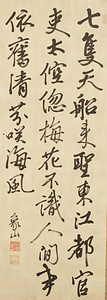 七隻天船來聖東江都官
吏太倥偬梅花不識人間事
依舊清芬咲海風
象山